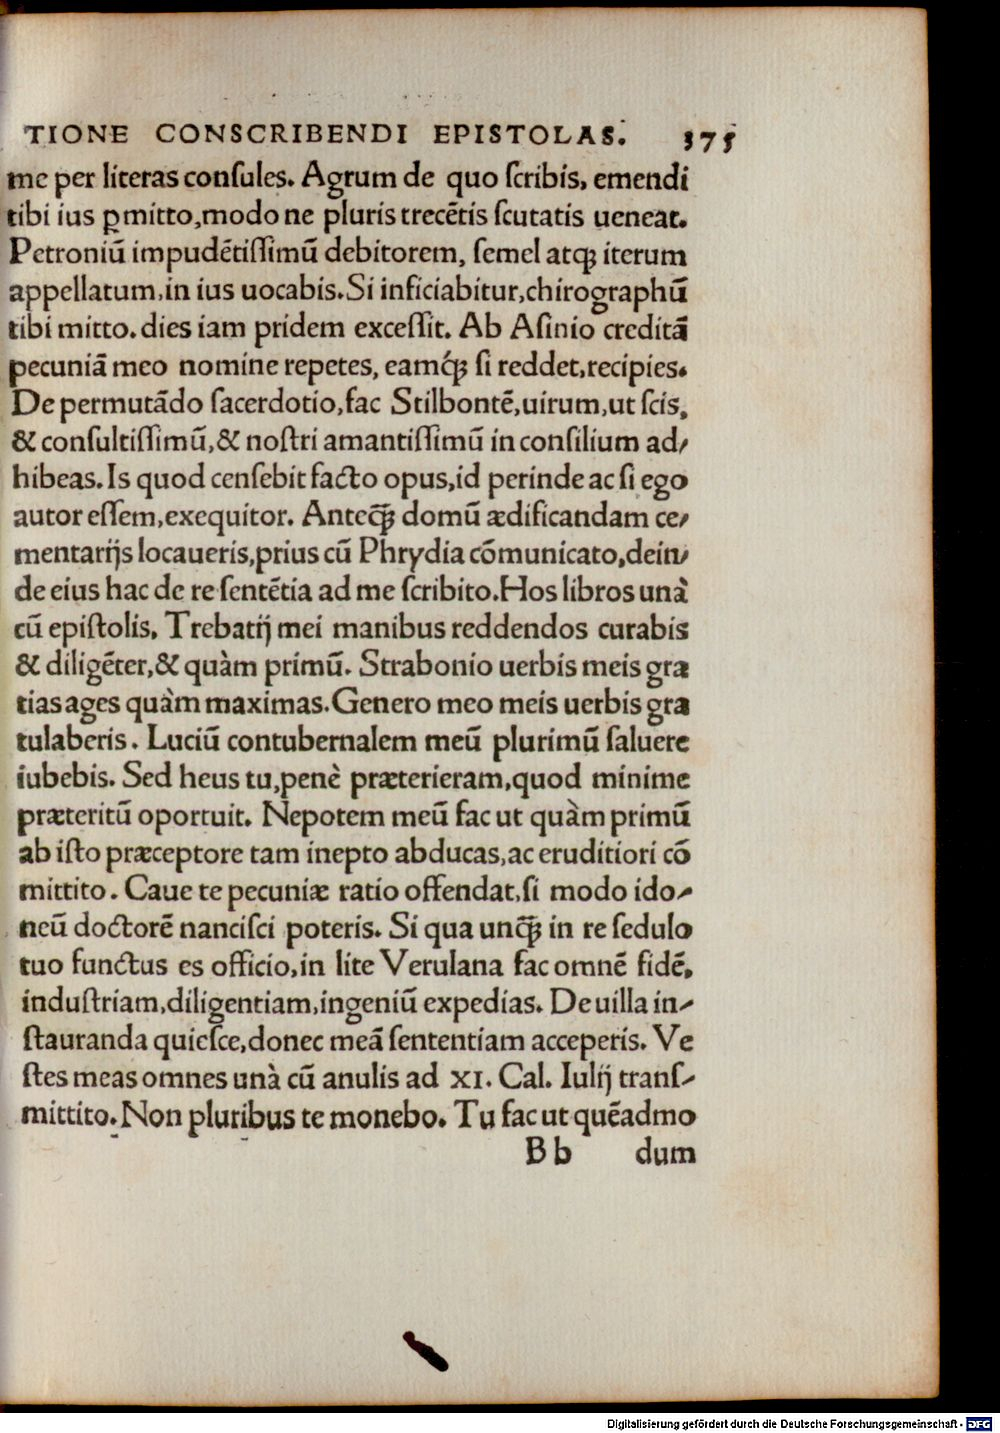 TIONE CONSCRIBENDI EPISTOLAS. 375
me per literas conſules. Agrum de quo ſcribis, emendi
tibi ius ꝑmitto, modo ne pluris trecẽtis ſcutatis ueneat.
Petroniũ impudẽtiſſimũ debitorem, ſemel atqꝫ iterum
appellatum, in ius uocabis. Si inficiabitur, chirographũ
tibi mitto. dies iam pridem exceſſit. Ab Aſinio creditã
pecuniã meo nomine repetes, eamq́ꝫ ſi reddet, recipies.
De permutãdo ſacerdotio, fac Stilbontẽ, uirum, ut ſcis,
& conſultiſſimũ, & noſtri amantiſſimũ in conſilium ad/
hibeas. Is quod cenſebit facto opus, id perinde ac ſi ego
autor eſſem, exequitor. Anteq̃ꝫ domũ ædificandam ce/
mentarijs locaueris, prius cũ Phrydia cõmunicato, dein/
de eius hac de re ſentẽtia ad me ſcribito. Hos libros unà
cũ epiſtolis, Trebatij mei manibus reddendos curabis
& diligẽter, & quàm primũ. Strabonio uerbis meis gra
tias ages quàm maximas. Genero meo meis uerbis gra
tulaberis. Luciũ contubernalem meũ plurimũ ſaluere
iubebis. Sed heus tu, penè præterieram, quod minime
præteritũ oportuit. Nepotem meũ fac ut quàm primũ
ab iſto præceptore tam inepto abducas, ac eruditiori cõ
mittito. Caue te pecuniæ ratio offendat, ſi modo ido-
neũ doctorẽ nanciſci poteris. Si qua unq̃ꝫ in re ſedulo
tuo functus es officio, in lite Verulana fac omnẽ fidẽ,
induſtriam, diligentiam, ingeniũ expedias. De uilla in-
ſtauranda quieſce, donec meã ſententiam acceperis. Ve
ſtes meas omnes unà cũ anulis ad XI. Cal. Iulij tranſ-
mittito. Non pluribus te monebo. Tu fac ut quẽadmo
B b dum
Digitalisierung gefördert durch die Deutsche Forschungsgemeinschaft - DFG